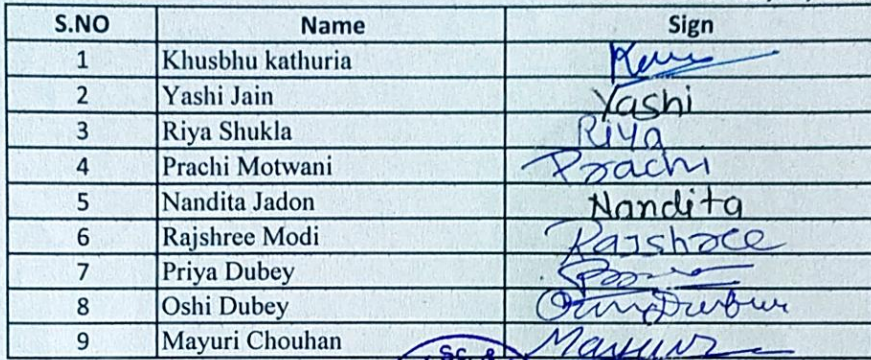 S.NO Name Sign
1 Khusbhu kathuria
2 Yashi Jain Yashi
3 Riya Shukla Riya
4 Prachi Motwani Prachi
5 Nandita Jadon Nandita
6 Rajshree Modi Rajshree
7 Priya Dubey
8 Oshi Dubey
9 Mayuri Chouhan
Sc. &